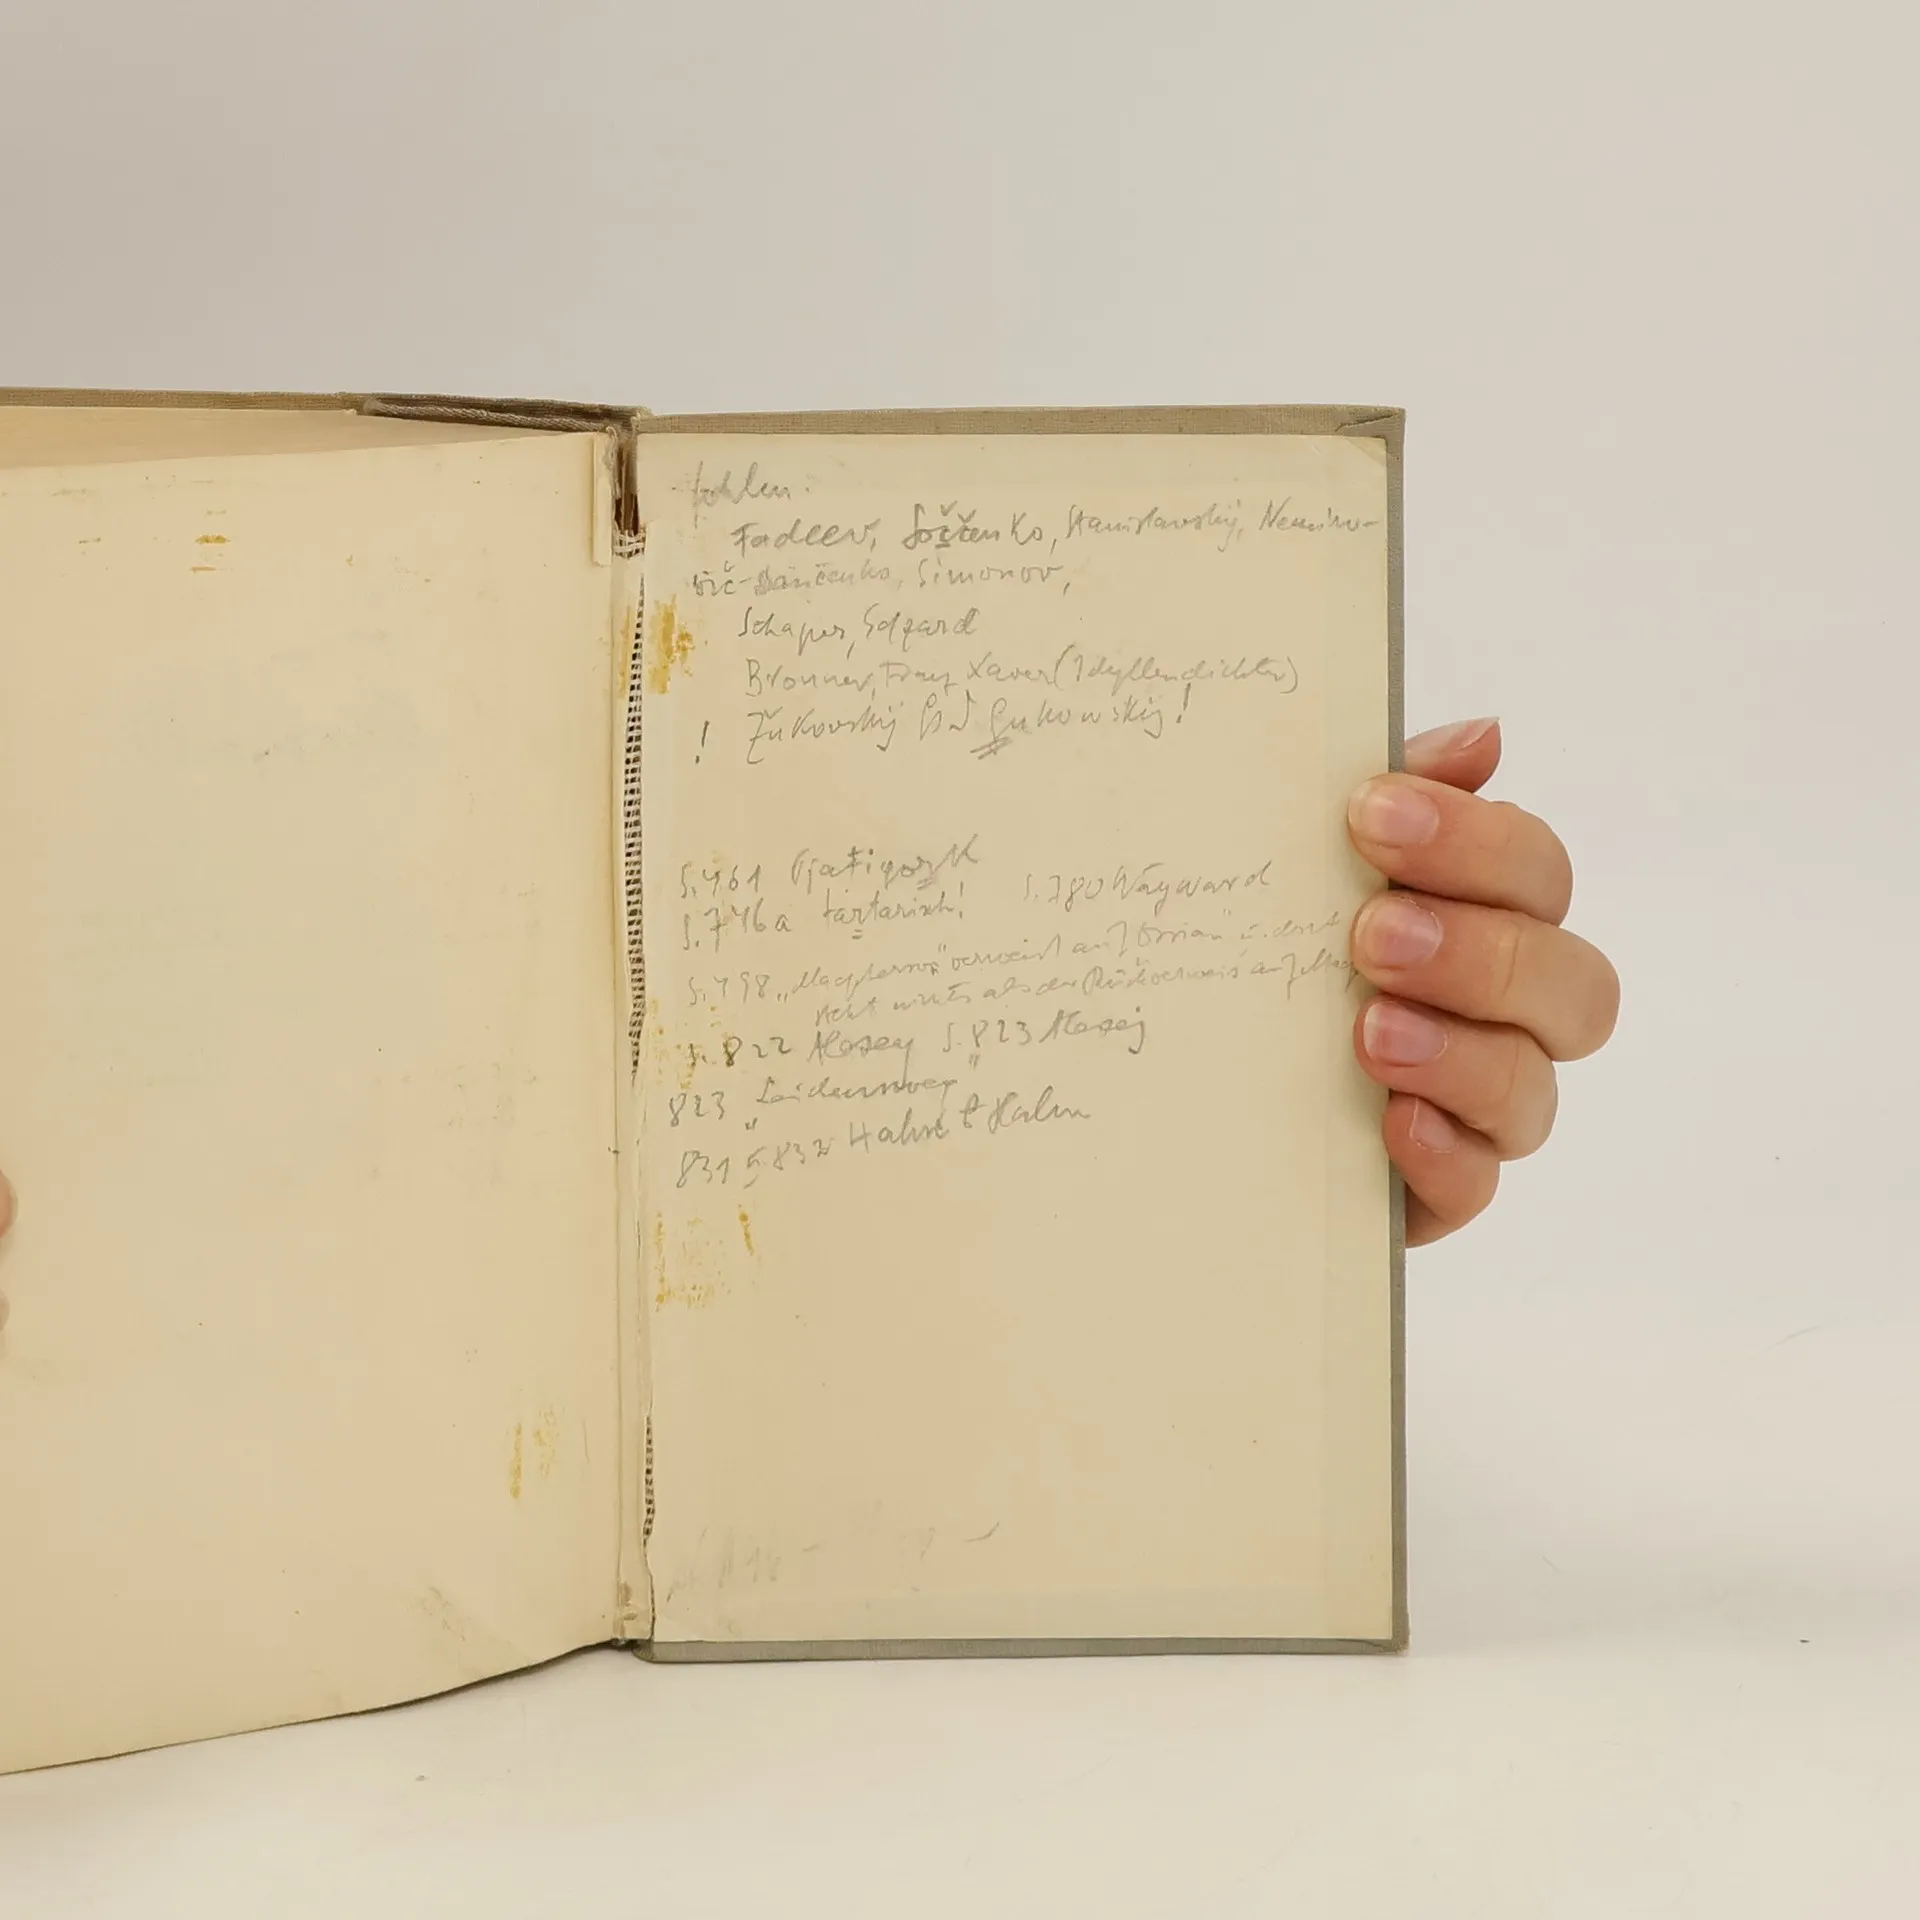 fehlen:
Fadeev, Soščenko, Stanislavskij, Nemiro-
vič-Dančenko, Simonov,
Schaper, Edzard
Bronner, Franz Xaver (Idyllendichter)
! Žukovskij Gukowskij!
S. 461 Pjatigorsk
S. 746a tartarisch! S. 780 Wayward
S. 798 „Macpherson“ verweist auf Ossian u. dort
steht nichts als der Rückverweis auf
S. 822 Alexey S. 823 Alexej
823 „Leidensweg“
831 832 Hahn Halm